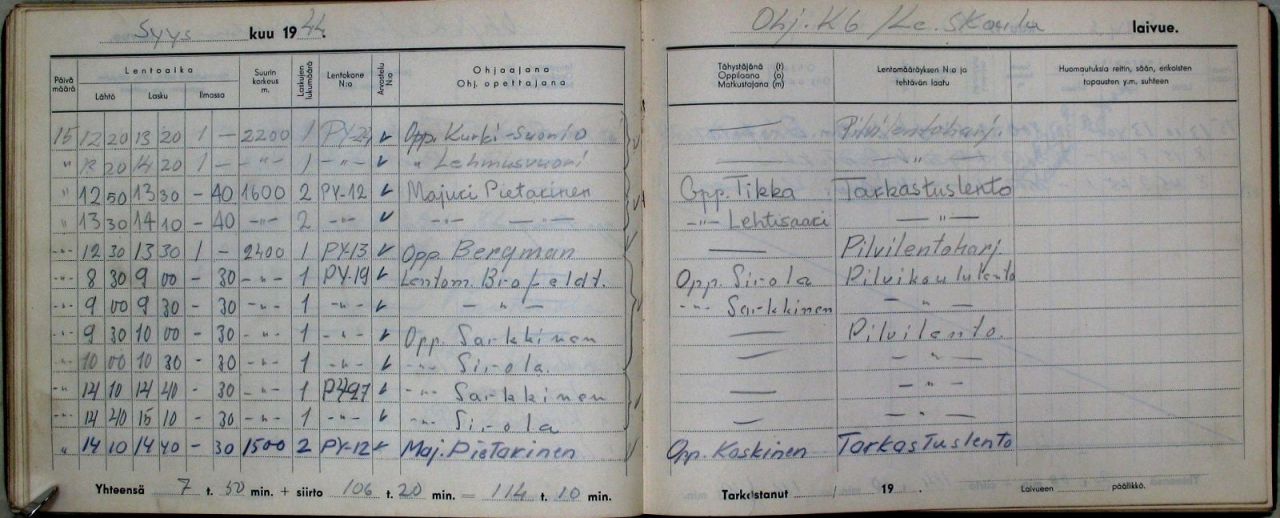 Syys kuu 1944. Ohj. K6 / Le. Skoulu laivue.
Päivä määrä Lentoaika Suurin korkeus m. Laskujen lukumäärä Lentokone N:o Arvostelu N:o Ohjaajana Ohj. opettajana Tähystäjänä (t) Oppilaana (o) Matkustajana (m) Lentomääräyksen N:o ja tehtävän laatu Huomautuksia reitin, sään, erikoisten tapausten y.m. suhteen
Lähtö Lasku Ilmassa
15 12 20 13 20 1 — 2200 1 PY-27 ✓ Opp. Kurki-Suonio — Pilvilentoharj.
" 13 20 14 20 1 — -"- 1 -"- ✓ " Lehmusvuori — — " —
" 12 50 13 30 - 40 1600 2 PY-12 ✓ Majuri Pietarinen Opp. Tikka Tarkastuslento
" 13 30 14 10 - 40 -"- 2 -"- ✓ -"- — " — -"- Lehtisaari — " —
-"- 12 30 13 30 1 - 2400 1 PY-13 ✓ Opp. Bergman — Pilvilentoharj.
-"- 8 30 9 00 - 30 -"- 1 PY-19 ✓ Lentom. Brofeldt. Opp. Sirola Pilvikoululento
-"- 9 00 9 30 - 30 -"- 1 -"- ✓ — " — -"- Sarkkinen — " —
-"- 9 30 10 00 - 30 -"- 1 -"- ✓ Opp. Sarkkinen — Pilvilento.
-"- 10 00 10 30 - 30 -"- 1 -"- ✓ -"- Sirola. — — " —
-"- 14 10 14 40 - 30 -"- 1 PY-27 ✓ -"- Sarkkinen — — " —
-"- 14 40 15 10 - 30 -"- 1 -"- ✓ -"- Sirola — — " —
" 14 10 14 40 - 30 1500 2 PY-12 ✓ Maj. Pietarinen Opp. Koskinen Tarkastuslento
Yhteensä 7 t. 50 min. + siirto 106 t. 20 min. = 114 t. 10 min. Tarkastanut / 19 . Laivueen päällikkö.